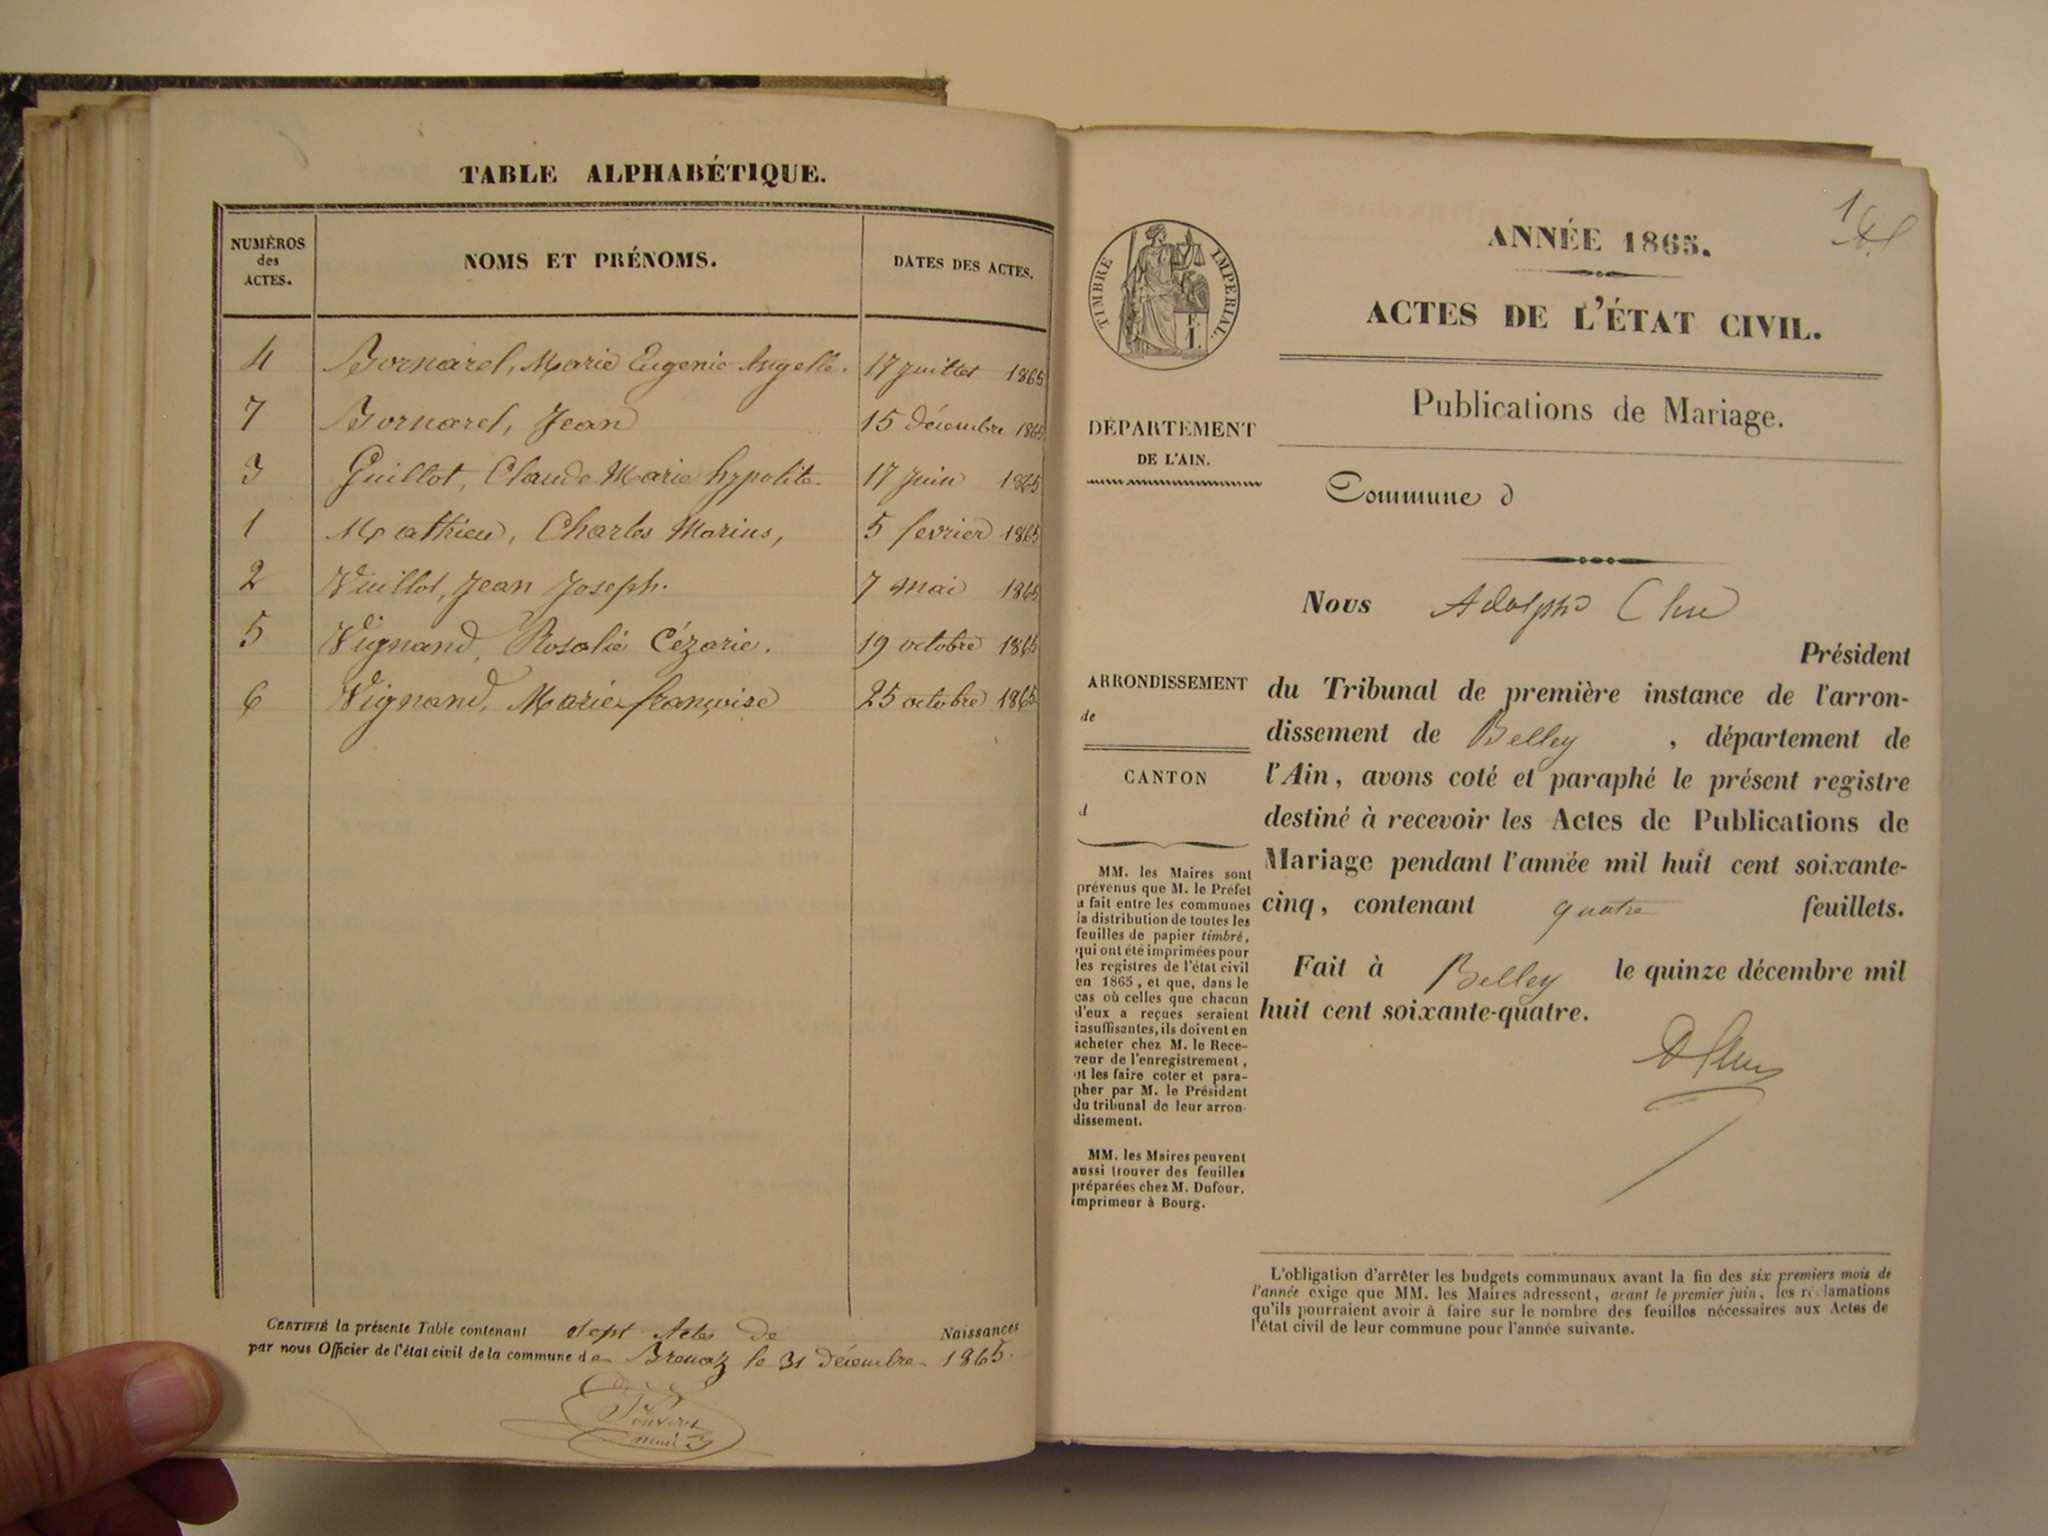 TABLE ALPHABÉTIQUE.
NUMÉROS des ACTES.
NOMS ET PRÉNOMS.
DATES DES ACTES.
4 Bornarel, Marie Eugenie Angelle. 17 juillet 1865
7 Bornarel, Jean 15 décembre 1865
3 Guillot, Claude Marie hypolite. 17 juin 1865
1 Mathieu, Charles Marius, 5 fevrier 1865
2 Vuillot, Jean Joseph. 7 mai 1865
5 Vignand, Rosalie Cézarie. 19 octobre 1865
6 Vignand, Marie françoise 25 octobre 1865
CERTIFIÉ la présente Table contenant Sept Actes de Naissances
par nous Officier de l'état civil de la commune de Brenaz le 31 décembre 1865.
1
TIMBRE IMPERIAL.
ANNÉE 1865.
ACTES DE L'ÉTAT CIVIL.
Publications de Mariage.
DÉPARTEMENT
DE L'AIN.
Commune d
ARRONDISSEMENT
de
CANTON
d
MM. les Maires sont
prévenus que M. le Préfet
a fait entre les communes
la distribution de toutes les
feuilles de papier timbré,
qui ont été imprimées pour
les registres de l'état civil
en 1865, et que, dans le
cas où celles que chacun
d'eux a reçues seraient
insuffisantes, ils doivent en
acheter chez M. le Rece-
veur de l'enregistrement,
et les faire coter et para-
pher par M. le Président
du tribunal de leur arron-
dissement.
MM. les Maires peuvent
aussi trouver des feuilles
préparées chez M. Dufour,
imprimeur à Bourg.
Nous Adolphe
Président
du Tribunal de première instance de l'arron-
dissement de Belley , département de
l'Ain, avons coté et paraphé le présent registre
destiné à recevoir les Actes de Publications de
Mariage pendant l'année mil huit cent soixante-
cinq, contenant quatre feuillets.
Fait à Belley le quinze décembre mil
huit cent soixante-quatre.
L'obligation d'arrêter les budgets communaux avant la fin des six premiers mois de
l'année exige que MM. les Maires adressent, avant le premier juin, les réclamations
qu'ils pourraient avoir à faire sur le nombre des feuilles nécessaires aux Actes de
l'état civil de leur commune pour l'année suivante.